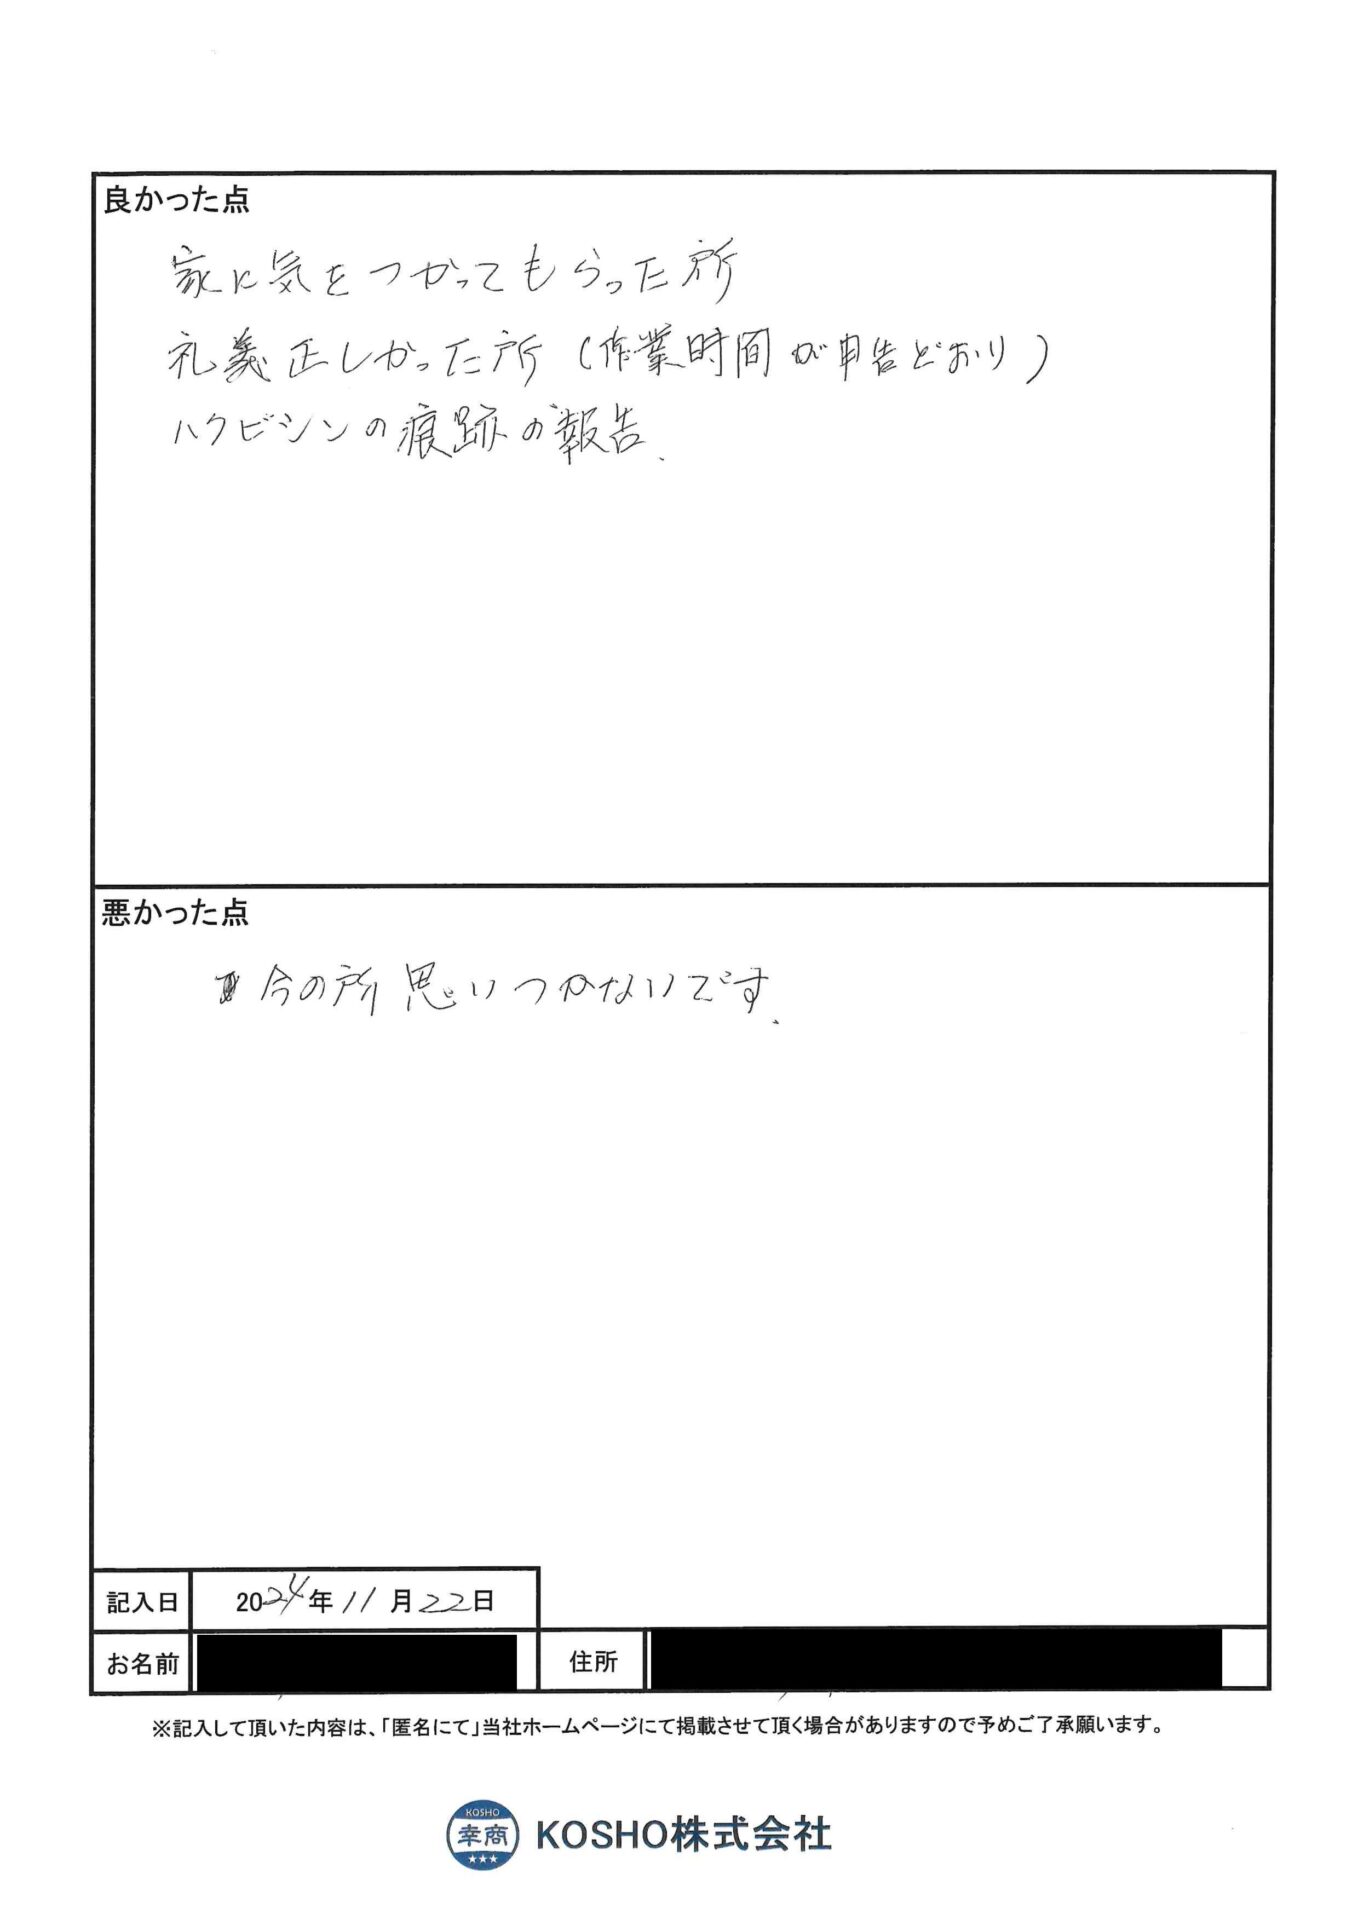 良かった点
家に気をつかってもらった所
礼義正しかった所（作業時間が申告どおり）
ハクビシンの痕跡の報告.
悪かった点
今の所思いつかないです.
記入日 2024年11月22日
お名前 住所
※記入して頂いた内容は、「匿名にて」当社ホームページにて掲載させて頂く場合がありますので予めご了承願います。
KOSHO
幸商
KOSHO株式会社